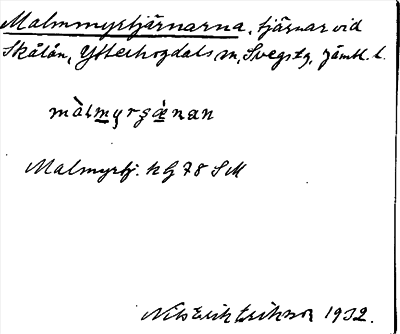 Malmmyrtjärnarna, tjärnar vid
Skålån, Ytterhogdals sn, Svegs tg, Jämtl. l.
màlmyrşæ̀nan
Malmyrtj. hG 78 SM
Nils Erik Eriksson 1932.